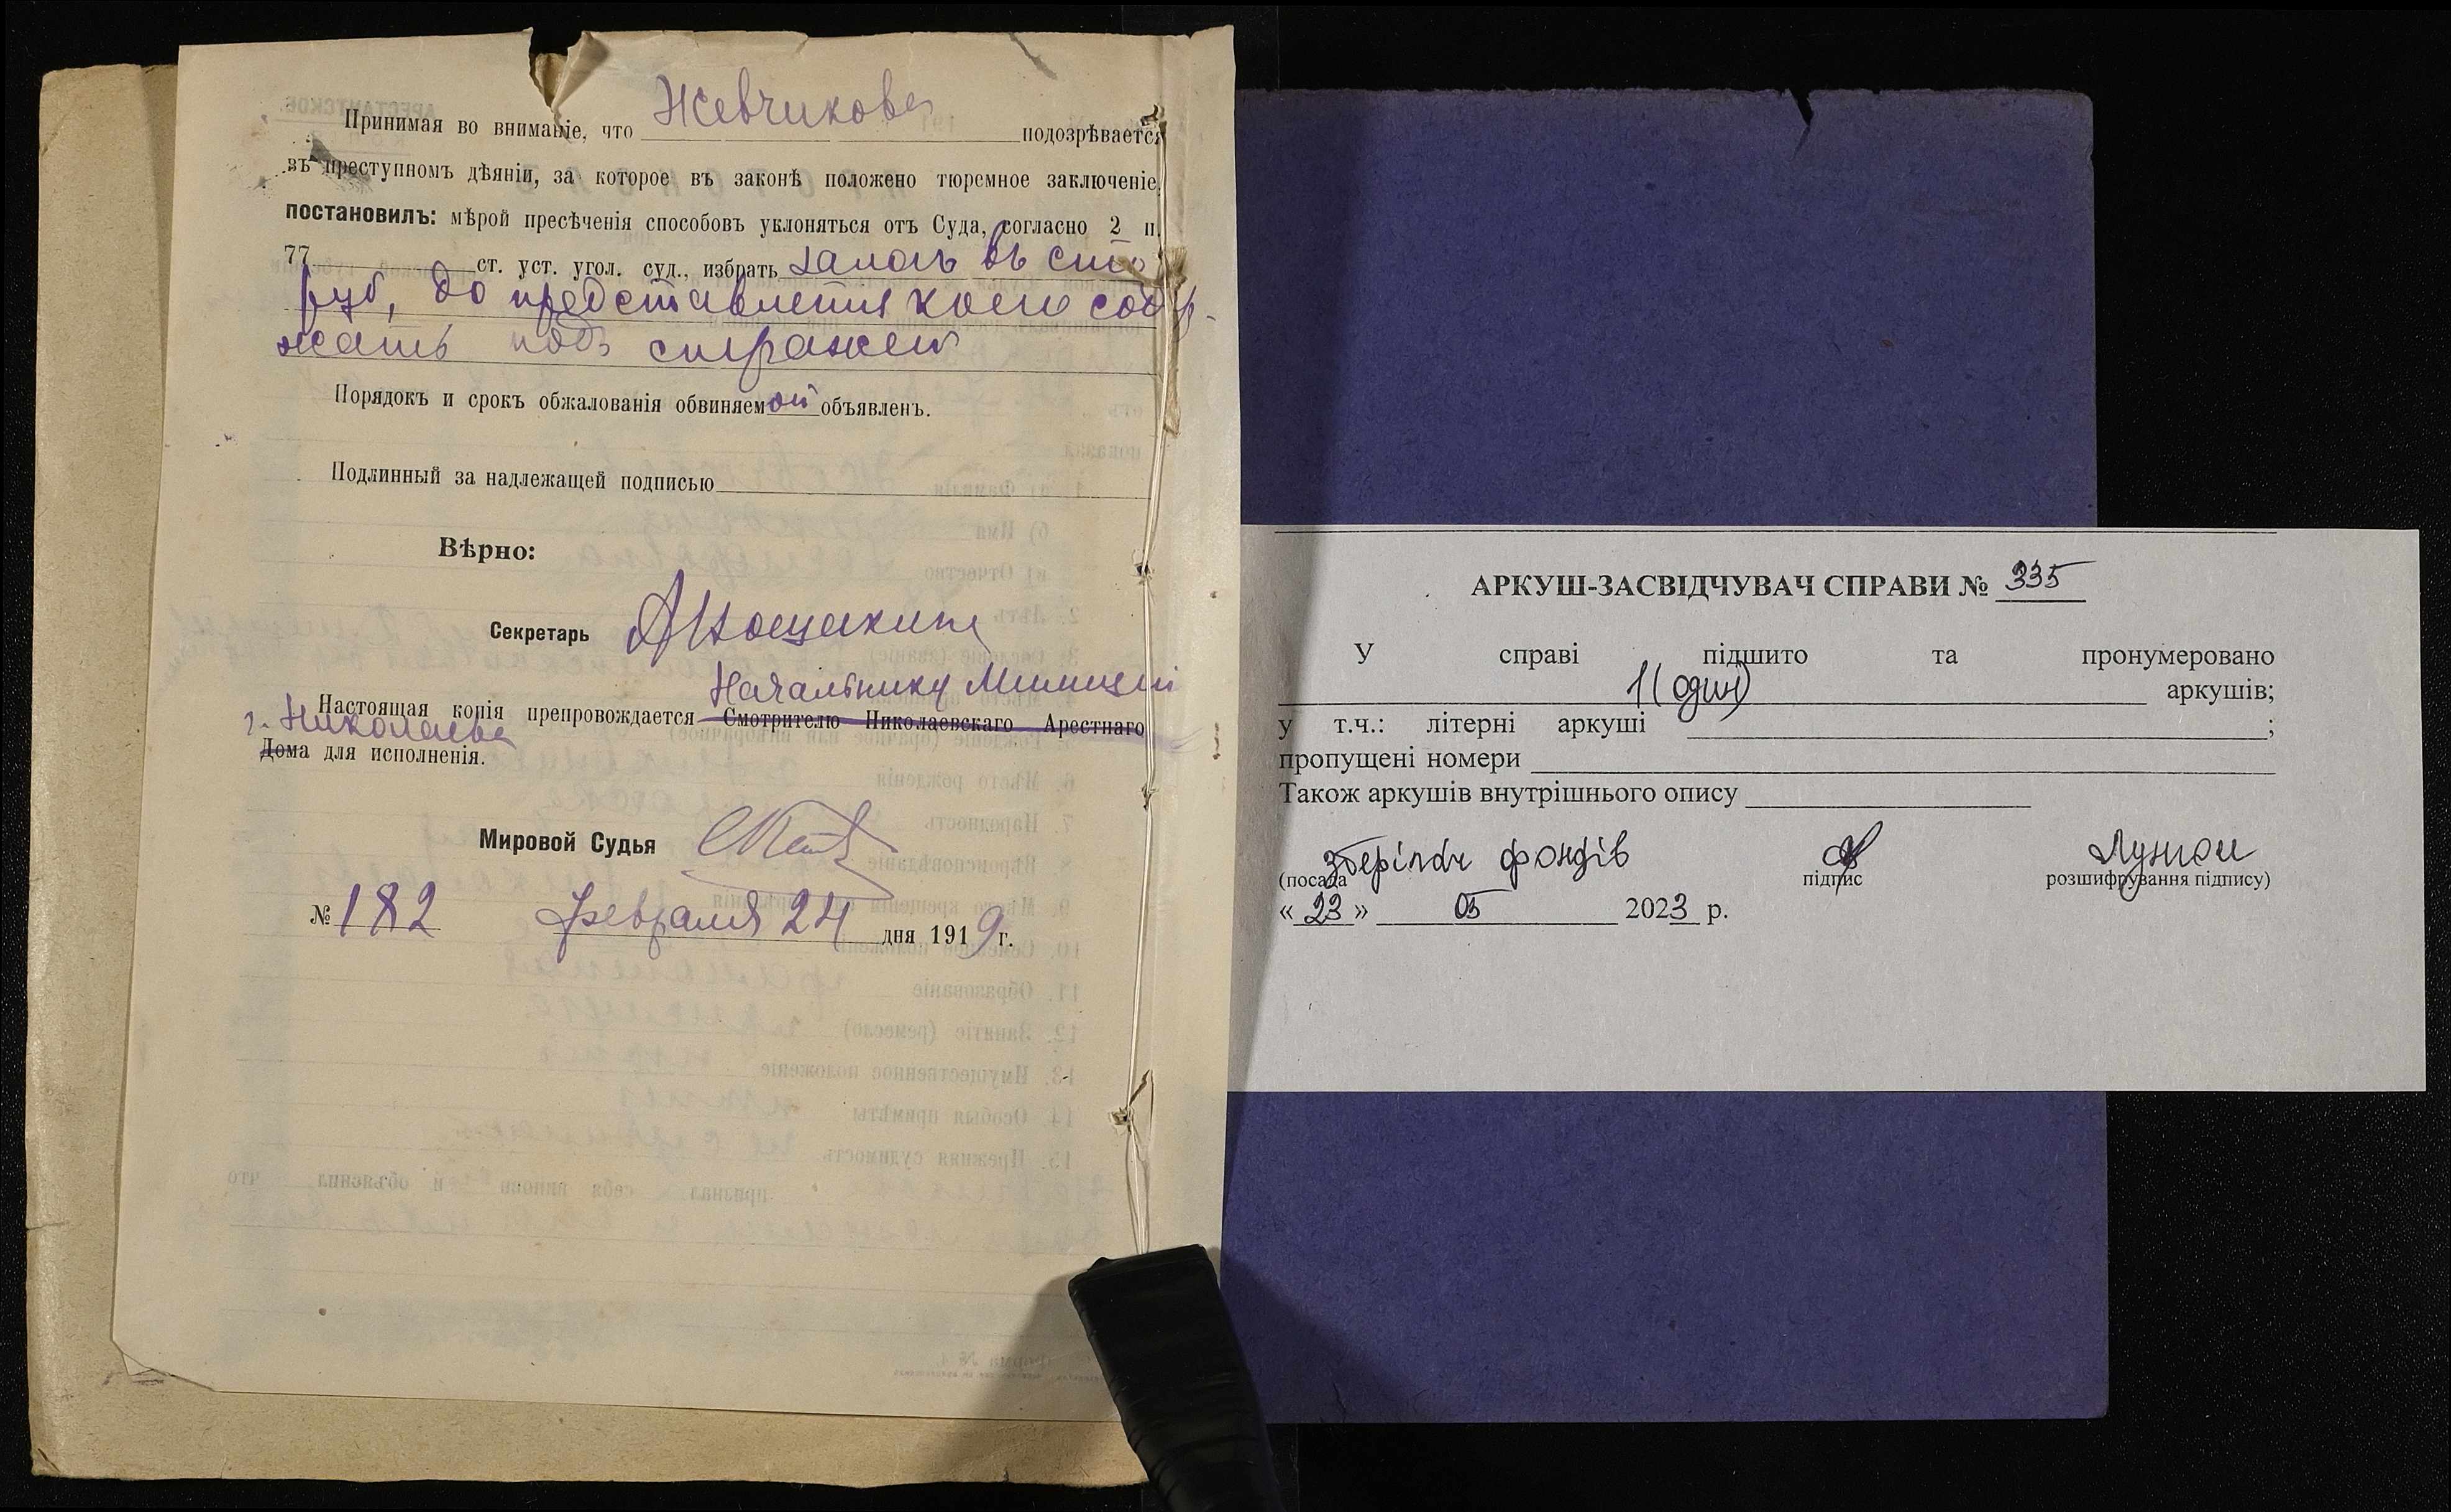 Принимая во вниманіе, что Жевчикова подозрѣвается
въ преступномъ дѣяніи, за которое въ законѣ положено тюремное заключеніе,
постановилъ: мѣрой пресѣченія способовъ уклоняться отъ Суда, согласно 2 п.
77 ст. уст. угол. суд., избрать залогъ въ сто
руб, до представленія коего содер-
жать подъ стражей
Порядокъ и срокъ обжалованія обвиняемой объявленъ.
Подлинный за надлежащей подписью
Вѣрно:
Секретарь
Начальнику Милиціи
Настоящая копія препровождается Смотрителю Николаевскаго Арестнаго
г. Николаева
Дома для исполненія.
Мировой Судья
№ 182 Февраля 24 дня 1919 г.
АРКУШ-ЗАСВІДЧУВАЧ СПРАВИ № 335
У справі підшито та пронумеровано
1 (один) аркушів;
у т.ч.: літерні аркуші ;
пропущені номери
Також аркушів внутрішнього опису
зберігач фондів
(посада підпис розшифрування підпису)
« 23 » 05 2023 р.